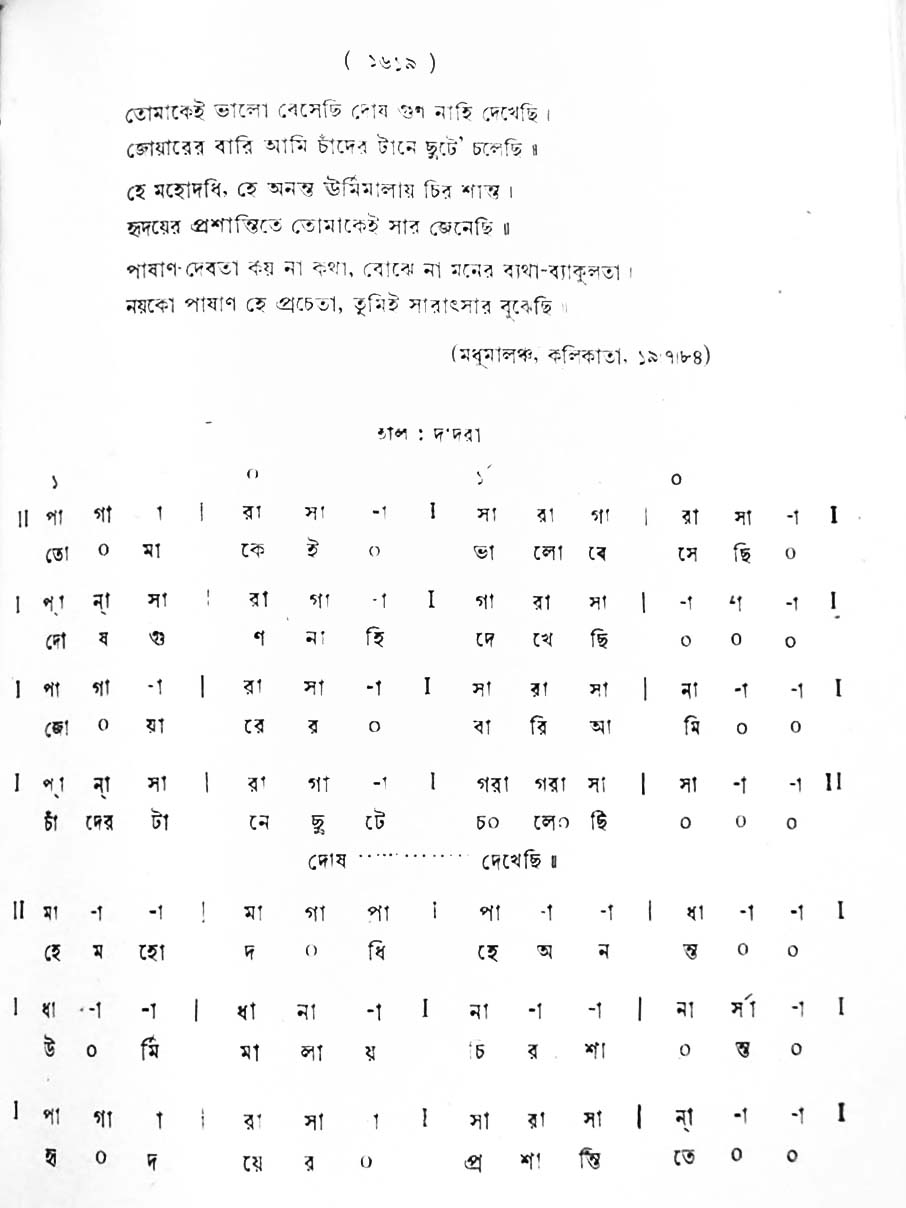 ( ১৬১৯ )
তোমাকেই ভালো বেসেছি দোষ গুণ নাহি দেখেছি ।
জোয়ারের বারি আমি চাঁদের টানে ছুটে' চলেছি ॥
হে মহোদধি, হে অনন্ত ঊর্মিমালায় চির শান্ত ।
হৃদয়ের প্রশান্তিতে তোমাকেই সার জেনেছি ॥
পাষাণ-দেবতা কয় না কথা, বোঝে না মনের ব্যথা-ব্যাকুলতা ।
নয়কো পাষাণ হে প্রচেতা, তুমিই সারাৎসার বুঝেছি ॥
(মধুমালঞ্চ, কলিকাতা, ১৯।৭।৮৪)
তাল : দাদরা
১ ০ ১́ ০
II পা গা া | রা সা -া I সা রা গা | রা সা -া I
তো ০ মা কে ই ০ ভা লো বে সে ছি ০
I প্া ন্া সা | রা গা -া I গা রা সা | -া -া -া I
দো ষ গু ণ না হি দে খে ছি ০ ০ ০
I পা গা -া | রা সা -া I সা রা সা | না -া -া I
জো ০ য়া রে র ০ বা রি আ মি ০ ০
I প্া ন্া সা | রা গা -া I গরা গরা সা | সা -া -া II
চাঁ দের টা নে ছু টে চ০ লে০ ছি ০ ০ ০
দোষ ············· দেখেছি ॥
II মা -া -া | মা গা পা I পা -া -া | ধা -া -া I
হে ম হো দ ০ ধি হে অ ন ন্ত ০ ০
I ধা -া -া | ধা না -া I না -া -া | না র্সা -া I
উ ০ র্মি মা লা য় চি র শা ০ ন্ত ০
I পা গা া | রা সা া I সা রা সা | ন্া -া -া I
হৃ ০ দ য়ে র ০ প্র শা ন্তি তে ০ ০